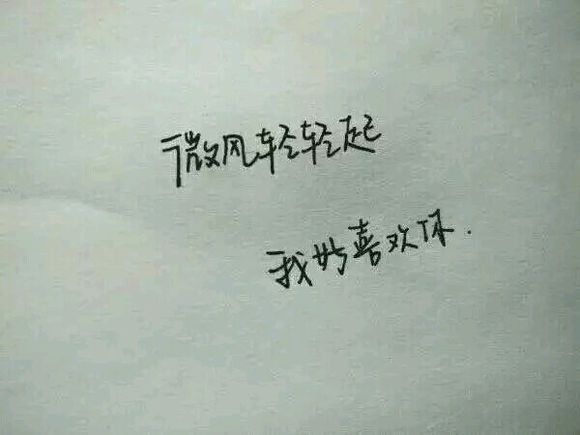 微风轻轻起
我好喜欢你.